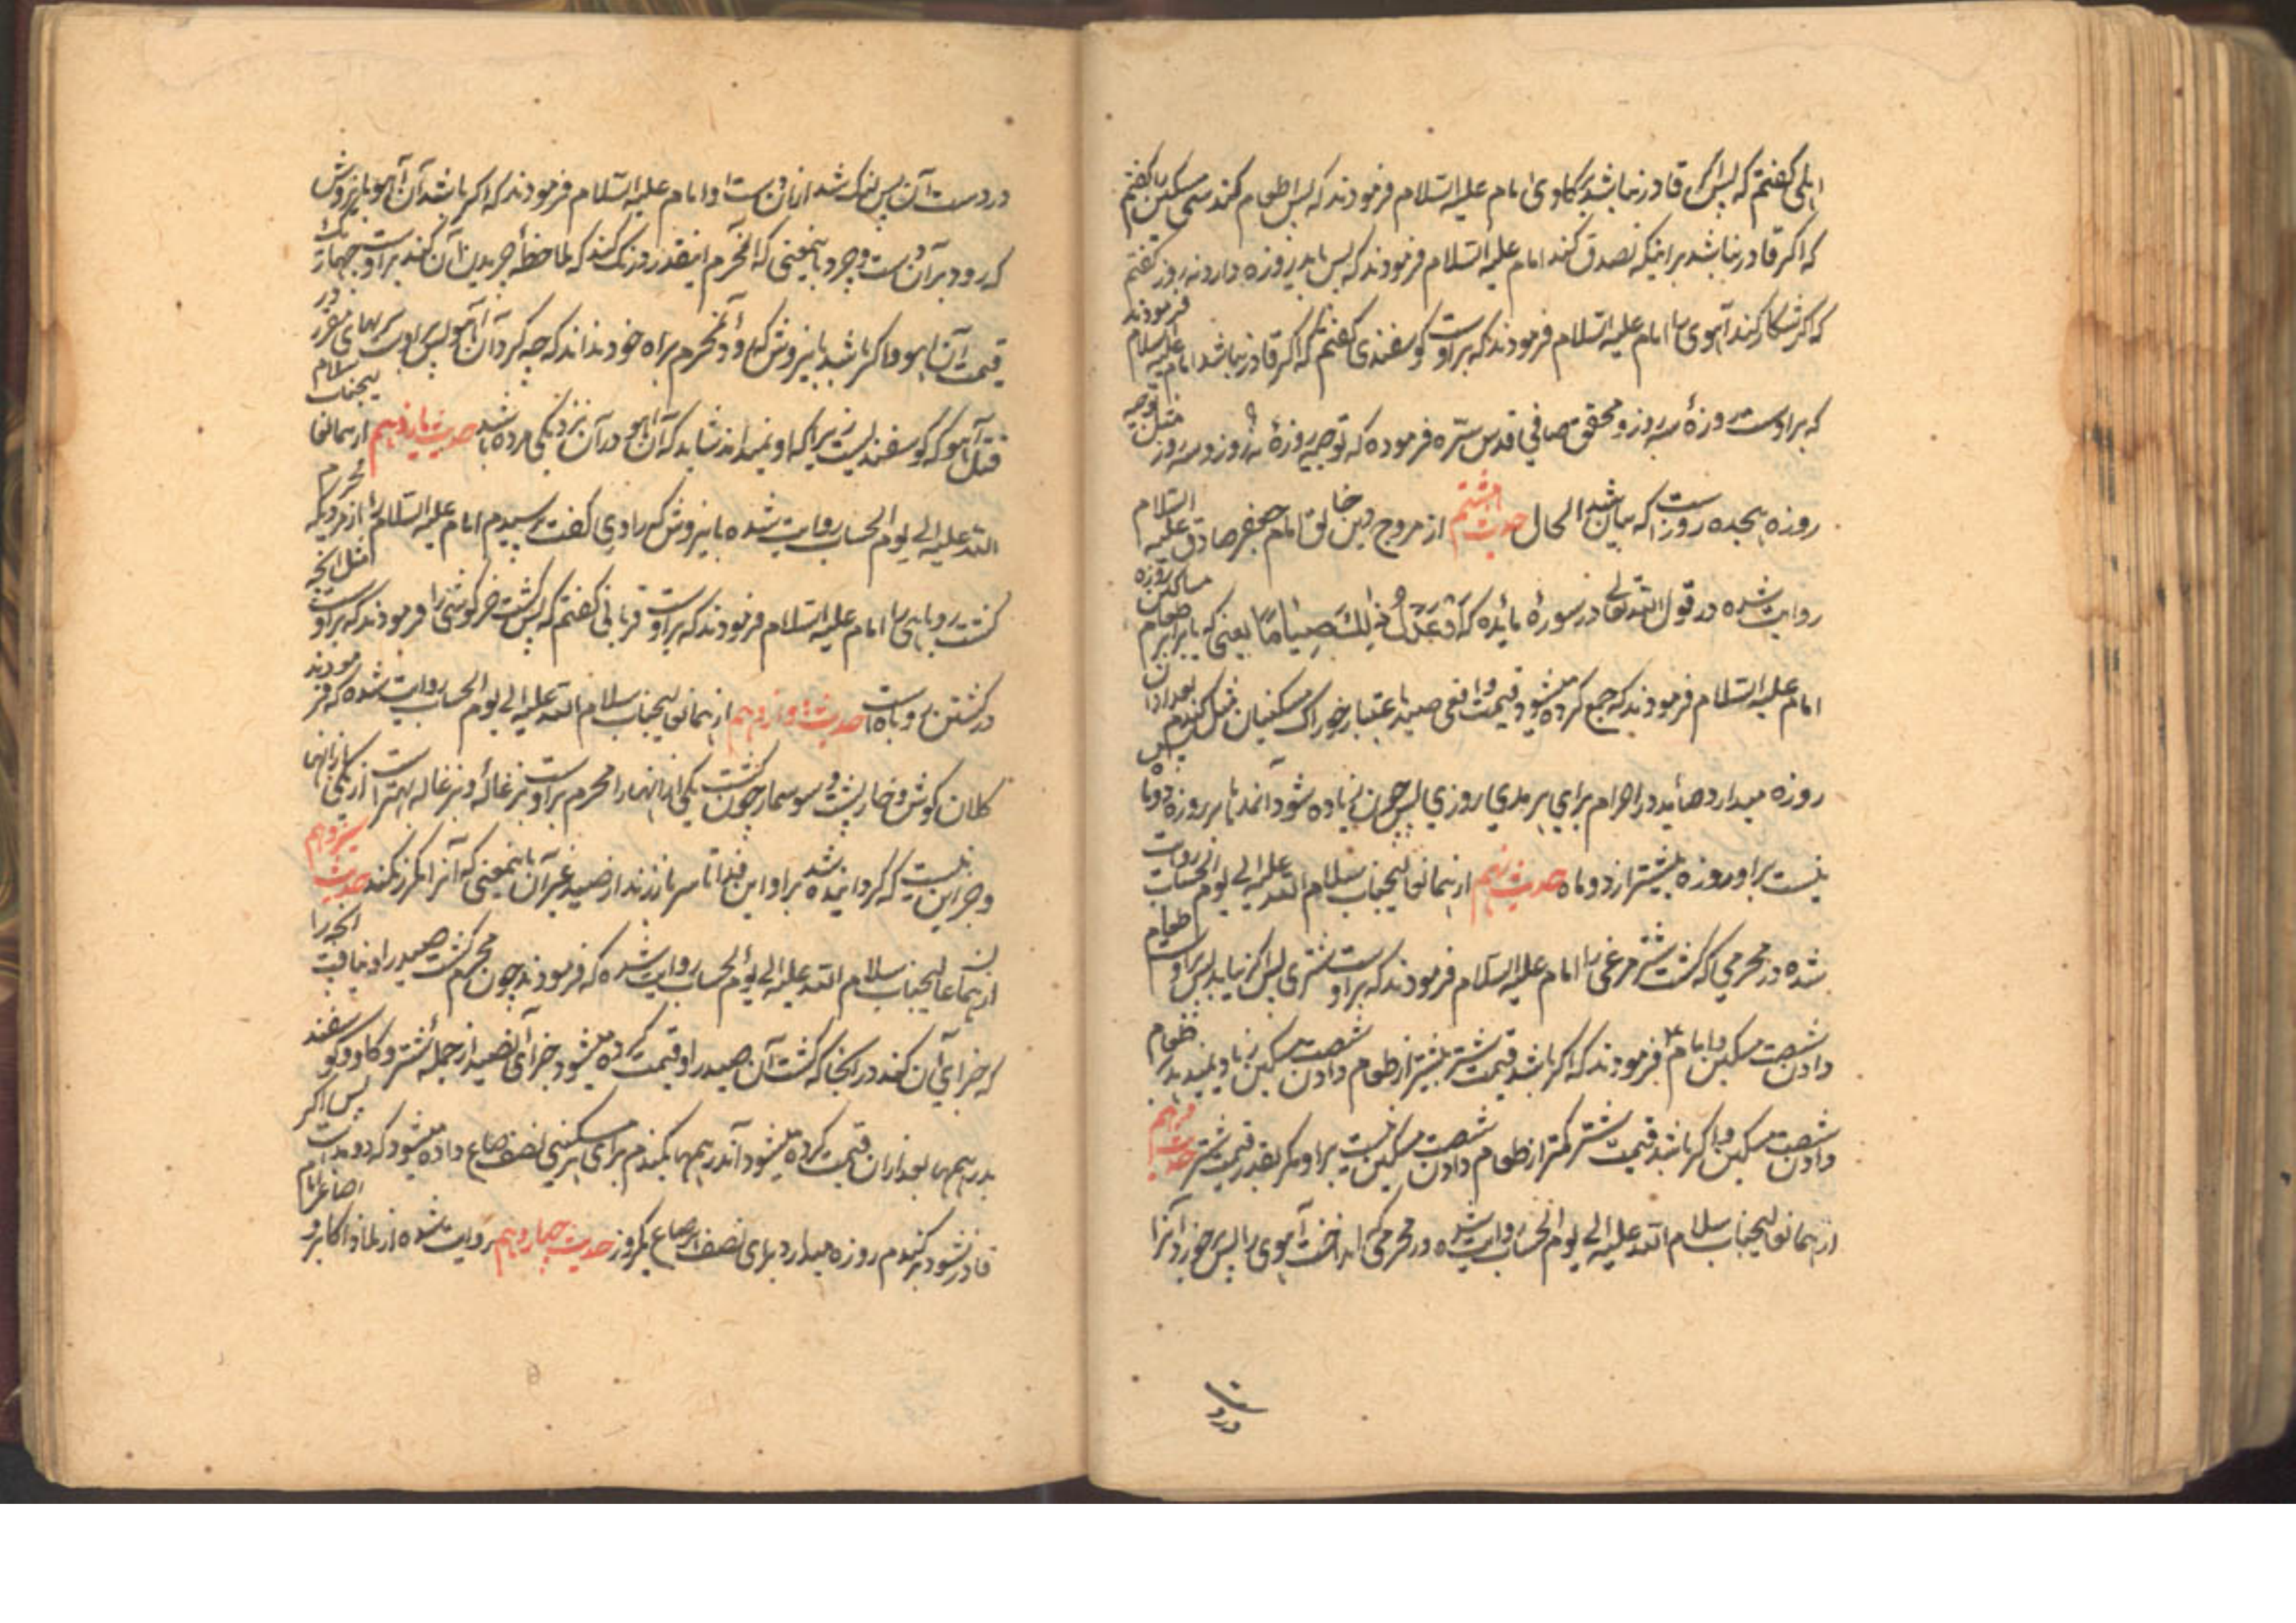 اهلی گفتم که پس اگر قادر نباشد بر گاوی امام علیه السلام فرمودند که پس اطعام کند سی مسکین را گفتم
که اگر قادر نباشد بر اینکه تصدق کند امام علیه السلام فرمودند که پس باید روزه دارد نه روز گفتم
که اگر شکار کند آهوی را امام علیه السلام فرمودند که بر اوست گوسفندی گفتم که اگر قادر نباشد امام علیه السلام فرمودند
که بر اوست روزهٔ سه روز و محقق صافی قدس سره فرموده که توجیه روزهٔ نه روز و سه روز مثل توجیه
روزه هجده روز است که بیان شد الحال حدیث هشتم از مروج دین خالق امام جعفر صادق علیه السلام
روایت شده در قول الله تعالی در سورهٔ مائده که أَوْ عَدْلُ ذَٰلِكَ صِيَامًا یعنی که یا برابر طعام مساکین روزه
امام علیه السلام فرمودند که جمع کرده میشود قیمت واقعی صید باعتبار خوراک مسکینان مثل گندم بعد از آن پس
روزه میدارد صائد در احرام برای هر مدی روزی پس چون زیاده شود آنمدها بر روزه دو ماه
نیست بر او روزه بیشتر از دو ماه حدیث نهم از همانعالیجناب سلام الله علیه الی یوم الحساب روایت
شده در محرمی که کشت شتر مرغی را امام علیه السلام فرمودند که بر اوست شتری پس اگر نیابد پس بر اوست طعام
دادن شصت مسکین و امام ع فرمودند که اگر باشد قیمت شتر بیشتر از طعام دادن شصت مسکین زیاد نمیدهد بر طعام
دادن شصت مسکین و اگر باشد قیمت شتر کمتر از طعام دادن شصت مسکین نیست بر او مگر بقدر قیمت شتر حدیث دهم
از همانعالیجناب سلام الله علیه الی یوم الحساب روایت شده در محرمی که انداخت آهوی را پس خورد آنرا
در دست
در دست آن پس لنگ شد از آن دست او امام علیه السلام فرمودند که اگر باشد آن آهو باینروش
که رود بر آن دست و چرد باینمعنی که آنمحرم اینقدر درنگ کند که ملاحظهٔ چریدن آن کند بر اوست چهار یک
قیمت آن آهو و اگر باشد باینروش که رود آنمحرم براه خود نداند که چه کرد آن آهو پس بر اوست بهای مقرر در
قتل آهو که گوسفندیست زیرا که او نمیداند شاید که آن آهو در آن نزدیکی مرده باشد حدیث یازدهم از همانعالیجناب سلام
الله علیه الی یوم الحساب روایت شده باینروش که راوی گفت پرسیدم امام علیه السلام را از مردیکه محرم
کشت روباهی را امام علیه السلام فرمودند که بر اوست قربانی گفتم که پس کشت خرگوشی را فرمودند که بر اوست مثل آنچه
در کشتن روباه است حدیث دوازدهم از همانعالیجناب سلام الله علیه الی یوم الحساب روایت شده که فرمودند
کلان گوش و خارپشت و سوسمار چون کشت یکی از اینهارا محرم بر اوست بزغالهٔ و بزغاله بهتر است از یکی از اینها
و جز این نیست که گردانیده شد بر او این فدا تا سر باز زند از صید غیر آن باینمعنی که آنرا مکرر نکند حدیث سیزدهم
از همانعالیجناب سلام الله علیه الی یوم الحساب روایت شده که فرمودند چون محرم کشت صید را و نیافت آنچه را
که جزای آن کند در آنجا که کشت آن صید را و قیمت کرده میشود جزای آنصید از جمله شتر و گاو و گوسفند
بدرهمها بعد از آن قیمت کرده میشود آندرهمها بگندم برای هر مسکینی نصف صاع داده میشود که دو مدست پس اگر
قادر نشود بر گندم روزه میدارد برای نصف هر صاع یکروز حدیث چهاردهم روایت شده از ملاذ اکابر و اصاغر امام